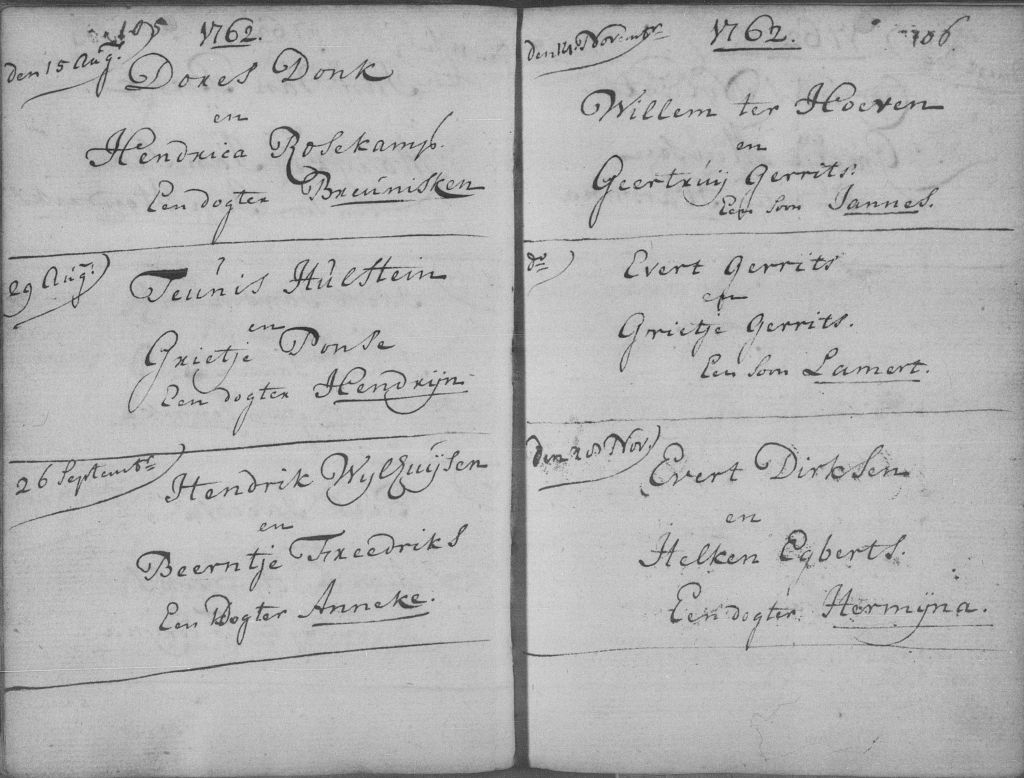 105 1762.
den 15 Aug: Dores Donk
en
Hendrica Rosekamp.
Een dogter Breunisken
29 Aug: Teunis Hulstein
en
Grietje Ponse
Een dogter Hendrijn
26 Septembr Hendrik Wylhuijsen
en
Beerntje Freedriks
Een Dogter Anneke.
1762. 106
den 14 Novembr
Willem ter Hoeven
en
Geertruij Gerrits.
Een soon Jannes.
do Evert Gerrits
en
Grietje Gerrits.
Een soon Lamert.
den 28 Nov. Evert Dirksen
en
Helken Egberts.
Een dogter Hermijna.